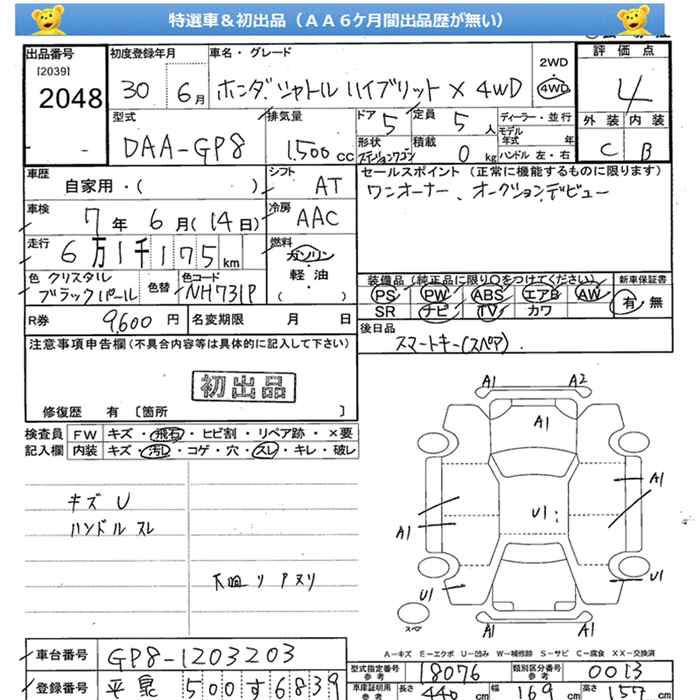 特選車＆初出品（ＡＡ６ケ月間出品歴が無い）
出品番号
[2039]
2048
初度登録年月
30 6月
車名・グレード
ホンダ シャトル ハイブリット X 4WD
2WD
4WD
評価点
4
外装 内装
C B
型式
DAA-GP8
排気量
1.500 cc
ドア 5
定員 5 人
形状 ステーションワゴン
積載 0 kg
ディーラー・並行
モデル年式 年
ハンドル 左・右
車歴
自家用・( )
シフト AT
セールスポイント (正常に機能するものに限ります)
ワンオーナー、オークションデビュー
車検 7年 6月(14日)
冷房 AAC
走行 6万1千175km
燃料
ガソリン
軽・油
( )
色 クリスタルブラックパール
色替
色コード NH731P
装備品 (純正品に限り○をつけてください)
新車保証書
PS PW ABS エアB AW
有・無
SR ナビ TV カワ
R券 9,600 円
名変期限 月 日
後日品
スマートキー(スペア).
注意事項申告欄(不具合内容等は具体的に記入して下さい)
初出品
修復歴 有 〔箇所 〕
検査員記入欄
FW キズ・飛石・ヒビ割・リペア跡・×要
内装 キズ・汚レ・コゲ・穴・スレ・キレ・破レ
キズ U
ハンドル スレ
下回リ
A1 A2
A1
A1
U1
A1
U1
U1
スペア
A1 A1
A-キズ E-エクボ U-凹み W-補修跡 S-サビ C-腐食 XX-交換済
車台番号 GP8-1203203
型式指定番号 参考 18076
類別区分番号 参考 0013
登録番号 平泉 500 す 6839
車庫証明用 参考 長さ 440 cm 幅 169 cm 高さ 157 cm